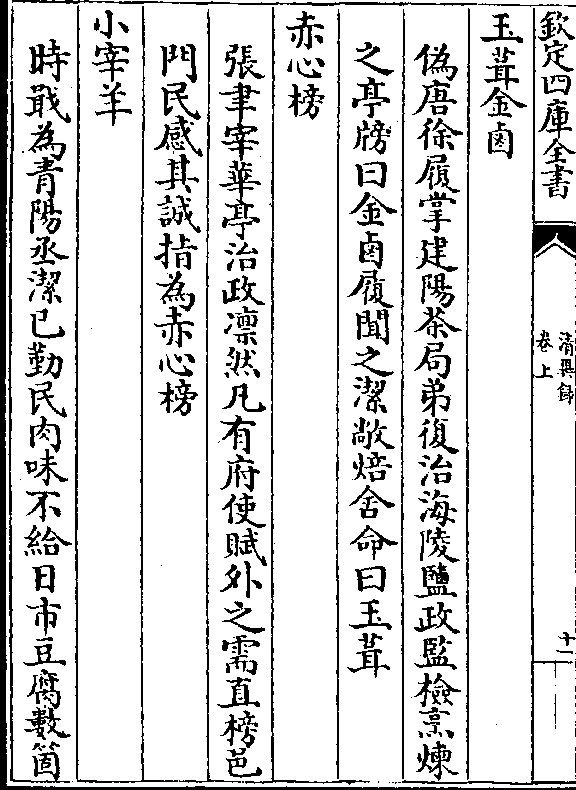 欽定四庫全書
清異錄
卷上
十一
玉葺金鹵
偽唐徐履掌建陽茶局弟復治海陵鹽政監檢烹煉
之亭牓曰金鹵履聞之潔敞焙舍命曰玉茸
赤心榜
張聿宰華亭治政凛然凡有府使賦外之需直榜邑
門民感其誠指為赤心榜
小宰羊
時戢為青陽丞潔已勤民肉味不給日市豆腐數箇